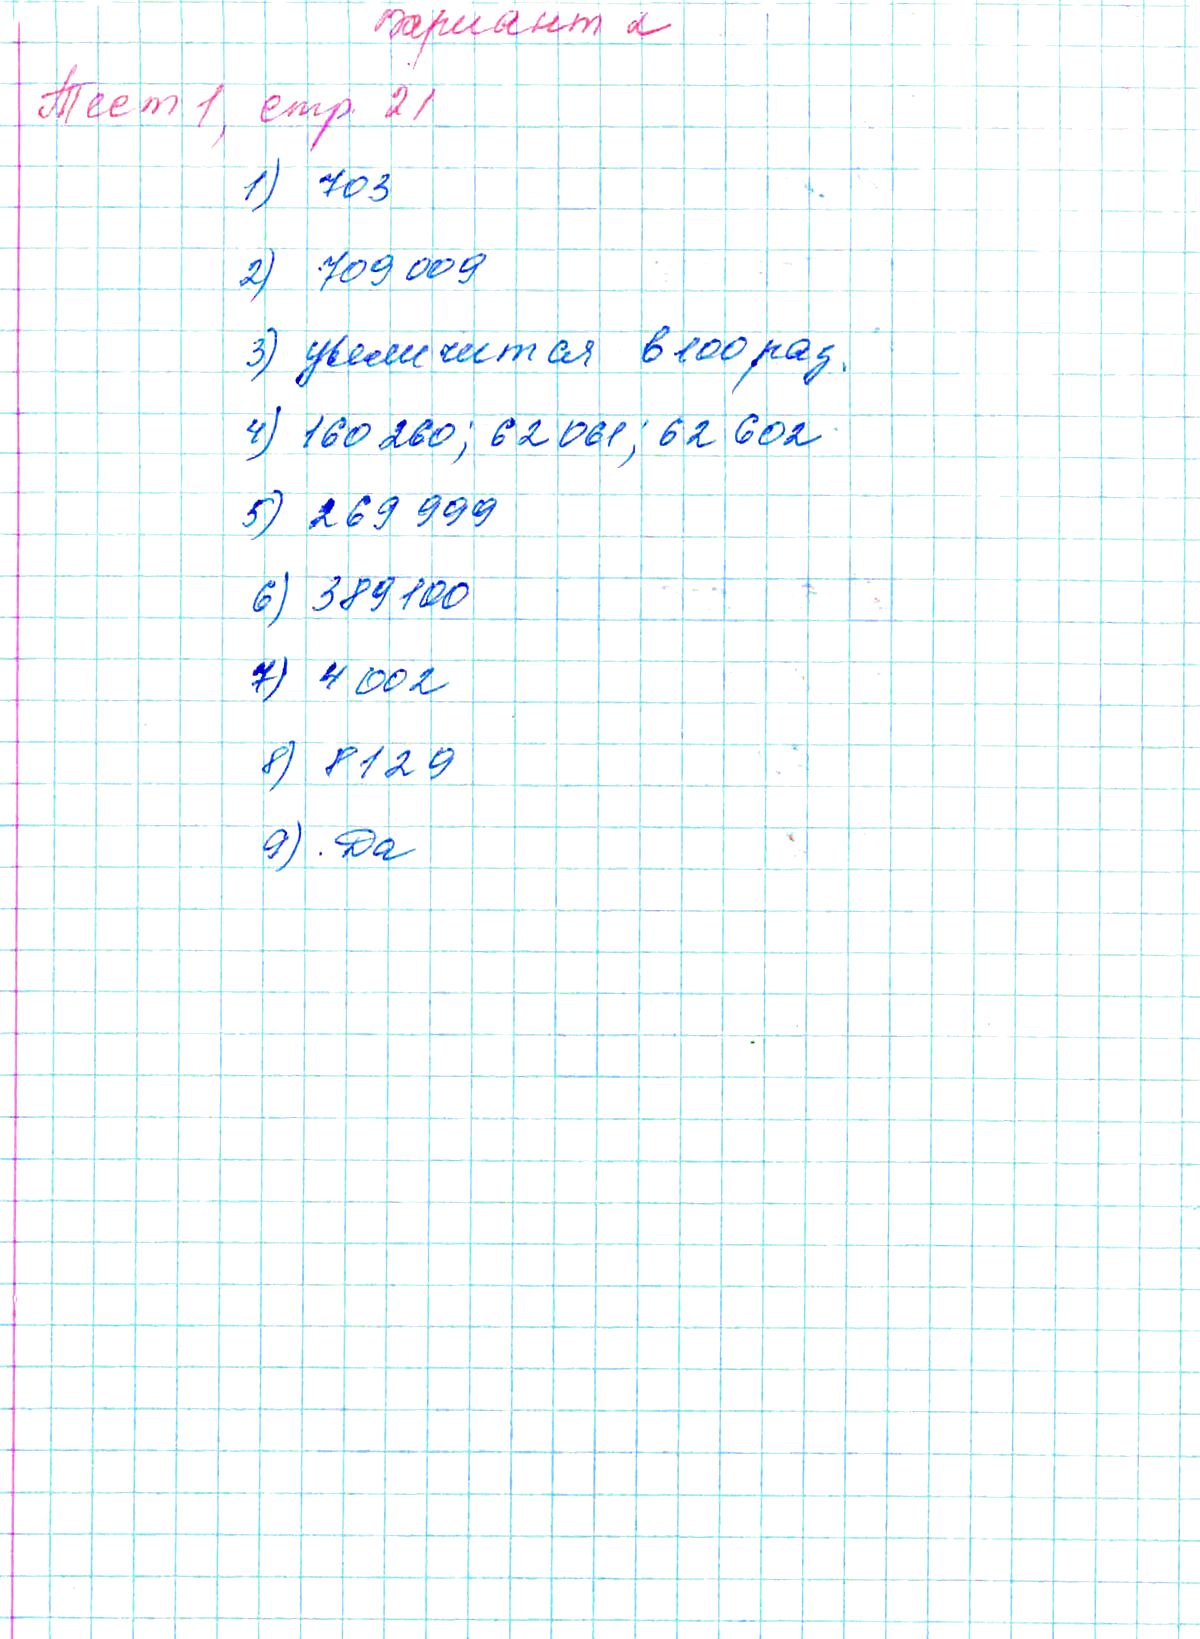 Вариант 2
Тест 1, стр. 21
1) 703
2) 709 009
3) увеличится в 100 раз.
4) 160 260; 62 061; 62 602
5) 269 999
6) 389 100
7) 4 002
8) 8129
9) Да